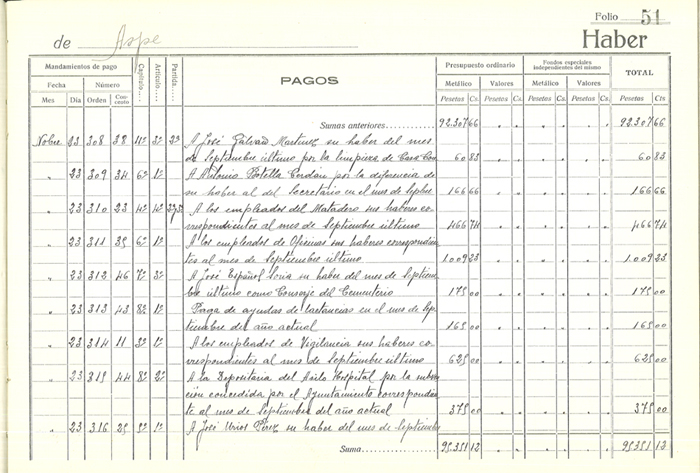 Folio 51
de Aspe Haber
Mandamientos de pago Capítulo Artículo Partida PAGOS Presupuesto ordinario Fondos especiales independientes del mismo TOTAL
Fecha Número Metálico Valores Metálico Valores
Mes Día Orden Con- cepto Pesetas Cs. Pesetas Cs. Pesetas Cs. Pesetas Cs. Pesetas Cts
Sumas anteriores 92.307 66 92.307 66
Nobre 23 308 38 11º 3º 2ª A José Galvañ Martinez su haber del mes
de Septiembre último por la limpieza de Casa Con. 60 83 60 83
" 23 309 34 6º 1º A Antonio Botella Cerdán por la diferencia de
su haber al del Secretario en el mes de Sepbre 166 66 166 66
" 23 310 23 4º 4º A los empleados del Matadero sus haberes co-
rrespondientes al mes de Septiembre último 466 74 466 74
" 23 311 35 6º 1º A los empleados de Oficinas sus haberes correspondien-
tes al mes de Septiembre último 1.009 23 1.009 23
" 23 312 46 7º 3º A José Español Soria su haber del mes de Septiem-
bre último como Conserje del Cementerio 175 00 175 00
" 23 313 43 8º 1º Paga de ayudas de lactancias en el mes de Sep-
tiembre del año actual 165 00 165 00
" 23 314 11 3º 1º A los empleados de Vigilancia sus haberes co-
rrespondientes al mes de Septiembre último 625 00 625 00
" 23 315 44 8º 2º A la Depositaria del Asilo Hospital por la subven-
ción concedida por el Ayuntamiento correspondien-
te al mes de Septiembre del año actual 375 00 375 00
" 23 316 25 5º 1º A José Urios Pérez su haber del mes de Septiembre
Suma 95.351 12 95.351 12